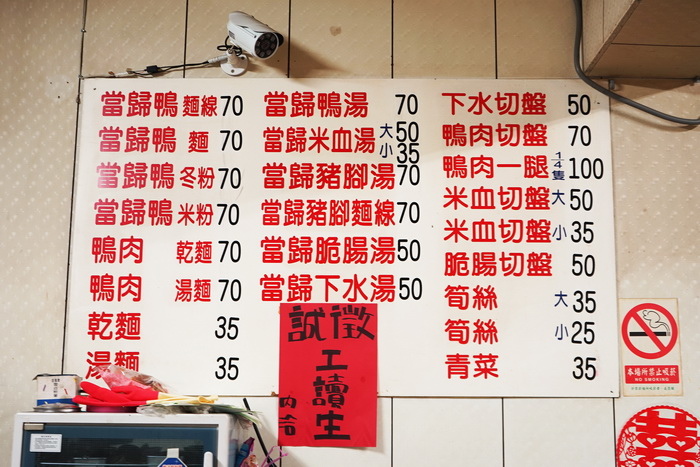 當歸鴨 麵線 70
當歸鴨 麵 70
當歸鴨 冬粉 70
當歸鴨 米粉 70
鴨肉 乾麵 70
鴨肉 湯麵 70
乾麵 35
湯麵 35
當歸鴨湯 70
當歸米血湯 大 50 小 35
當歸豬腳湯 70
當歸豬腳麵線 70
當歸脆腸湯 50
當歸下水湯 50
下水切盤 50
鴨肉切盤 70
鴨肉一腿 1/4隻 100
米血切盤 大 50
米血切盤 小 35
脆腸切盤 50
筍絲 大 35
筍絲 小 25
青菜 35
誠徵
工讀生
內合
本場所禁止吸菸
NO SMOKING
囍